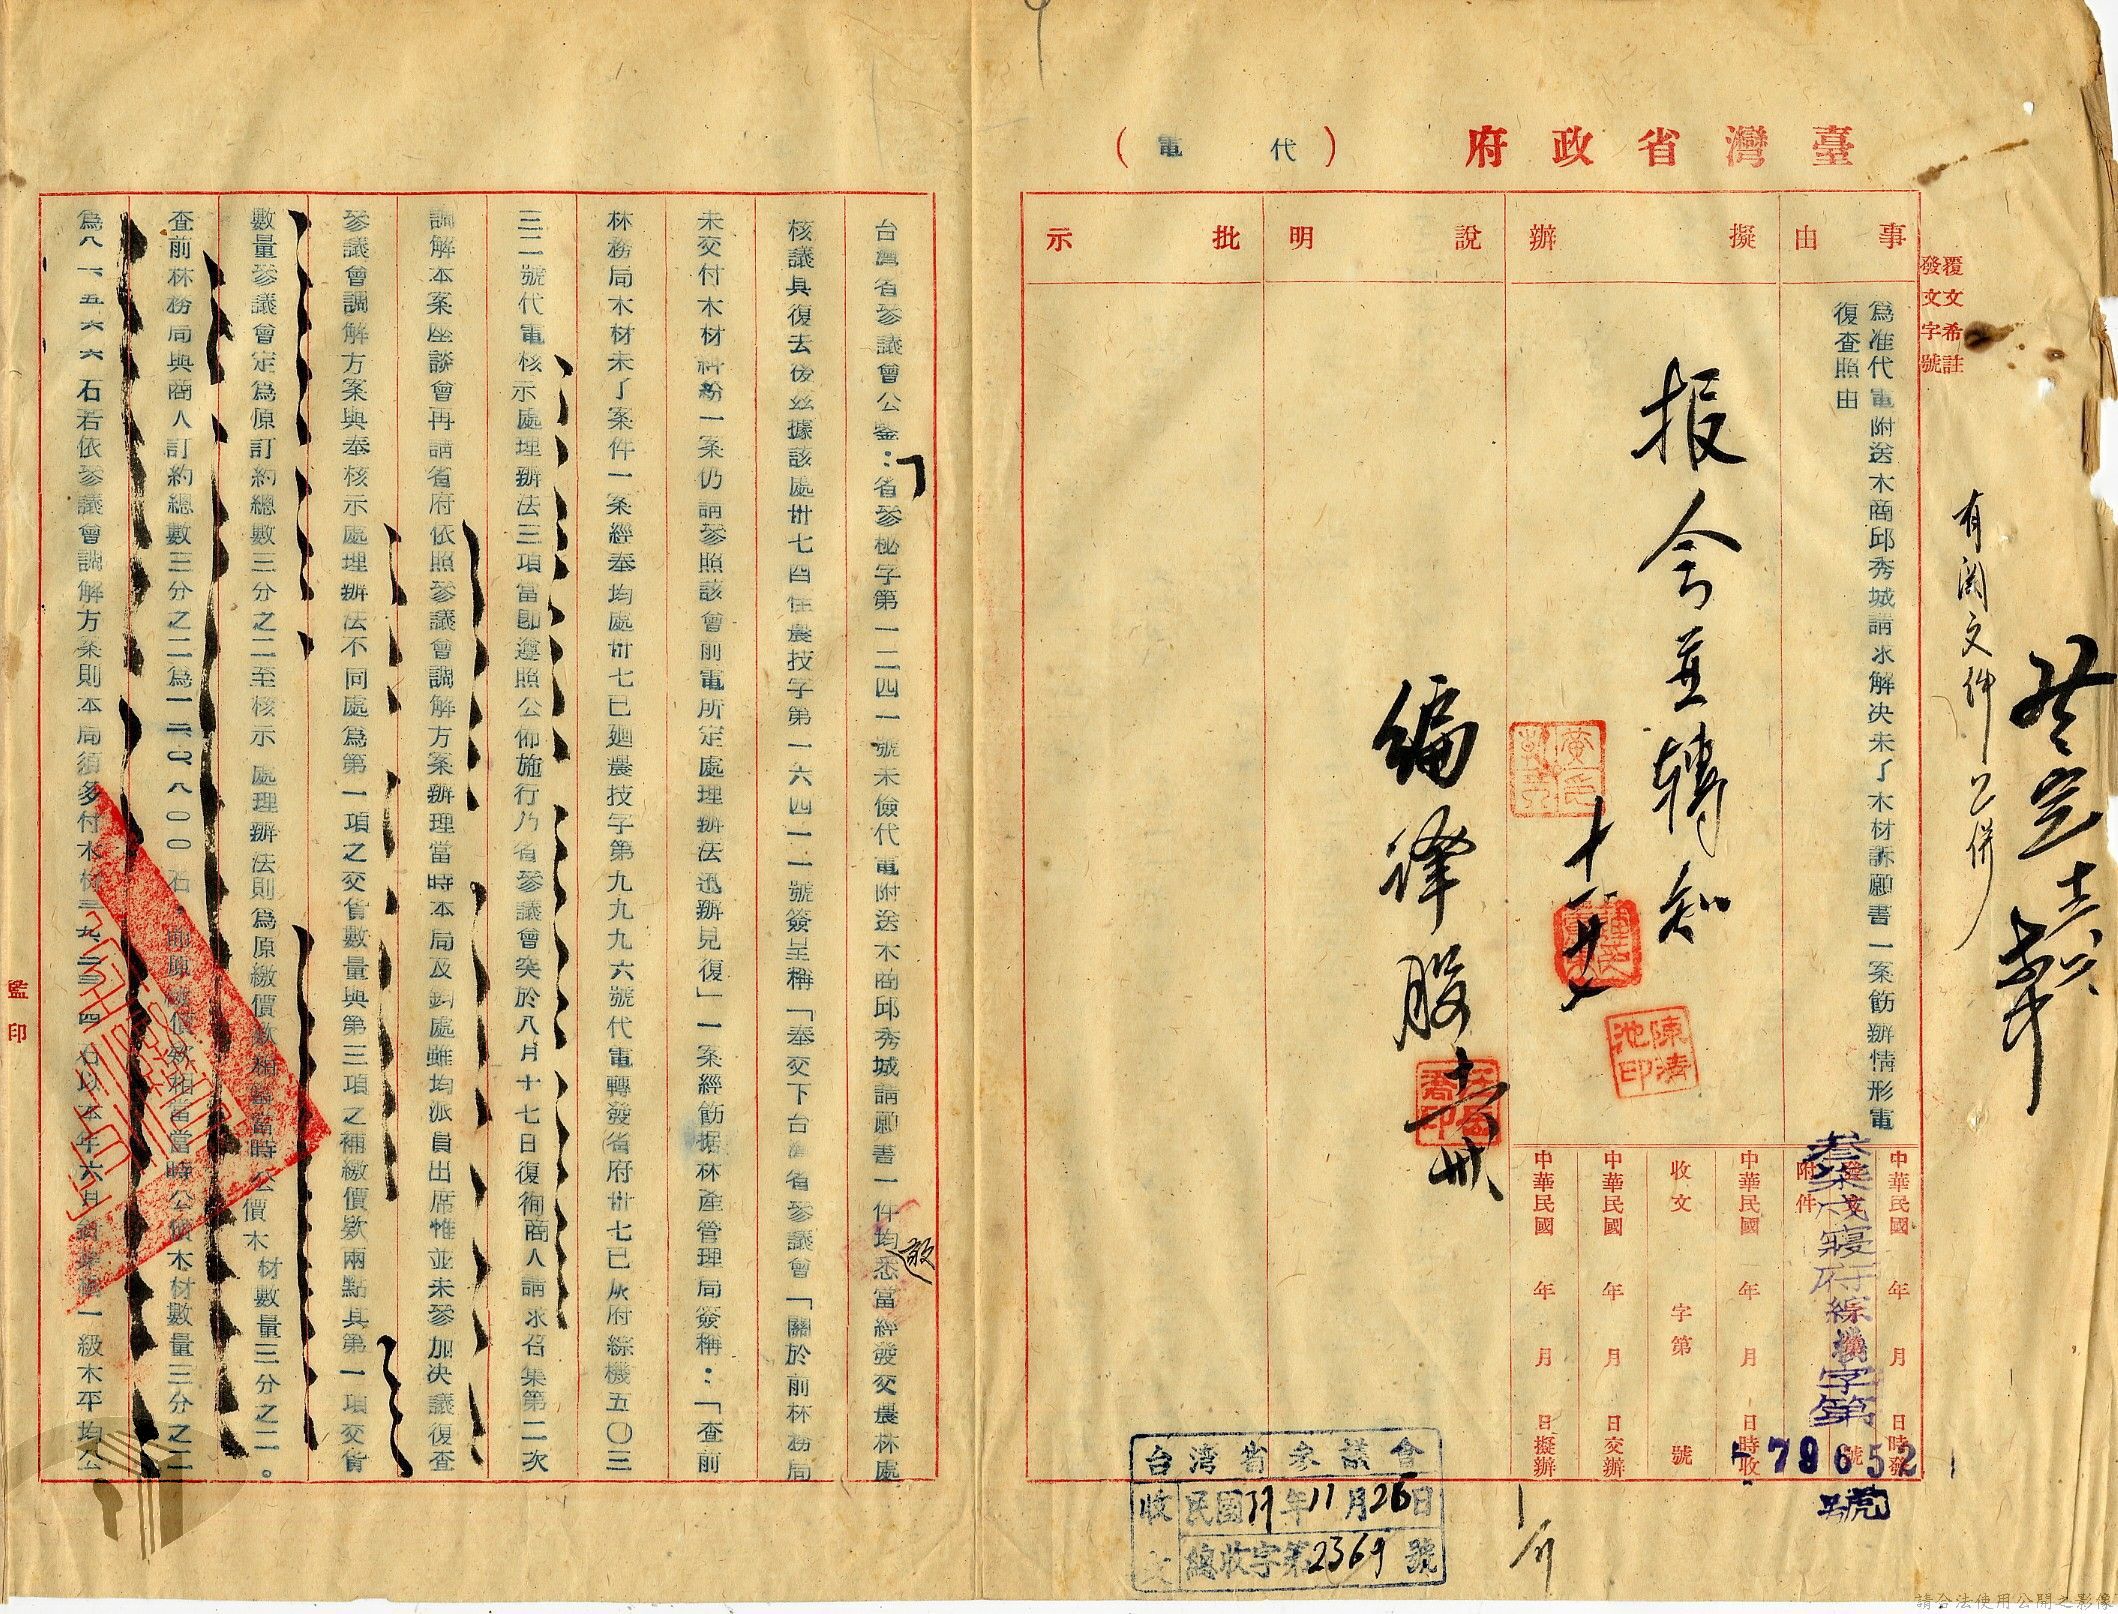 臺灣省政府（代電）
覆文希註
發文字號
事由
擬辦
說明
批示
為准代電附送木商邱秀城請求解决未了木材訴願書一案飭辦情形電
復查照由
報令並轉知
編律股
有関文件已併
中華民國 年 月 日 時發
附件
叁柒戌寢府綜機字第
79652
號
中華民國 年 月 日 時收
收文 字第 號
中華民國 年 月 日交辦
中華民國 年 月 日擬辦
陳清池印
台湾省参議會
收文
民國37年11月26日
總收字第2369號
台灣省參議會公鑒：省參秘字第一二四一號未儉代電附送木商邱秀城請願書一件均悉當經發交農林處
核議具復去後茲據該處卅七酉佳農技字第一六四一一號簽呈稱「奉交下台灣省參議會「關於前林務局
未交付木材糾紛一案仍請參照該會前電所定處理辦法迅辦見復」一案經飭据林產管理局簽稱：「查前
林務局木材未了案件一案經奉均處卅七已廻農技字第九九九六號代電轉發省府卅七已灰府綜機五〇三
三二號代電核示處理辦法三項當即遵照公佈施行乃省參議會突於八月十七日復徇商人請求召集第二次
調解本案座談會再請省府依照參議會調解方案辦理當時本局及鈞處雖均派員出席惟並未參加决議復查
參議會調解方案與奉核示處理辦法不同處為第一項之交貨數量與第三項之補繳價欵兩點其第一項交貨
數量參議會定為原訂約總數三分之二至核示處理辦法則為原繳價欵相當當時公價木材數量三分之二。
查前林務局與商人訂約總數三分之二為一二〇八〇〇石，而原繳價欵相當當時公價木材數量三分之二
為八一五六六石若依參議會調解方案則本局須多付木材三九二三四石以本年六月針葉樹一級木平均公
監印
請合法使用公開之影像